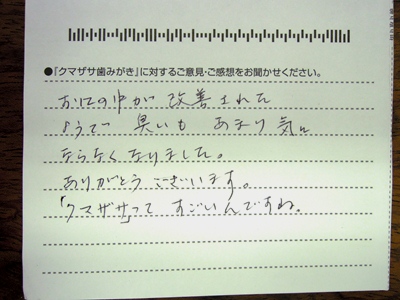 ●『クマザサ歯みがき』に対するご意見・ご感想をお聞かせください。
お口の中が 改善された
ようで 臭いも あまり気に
ならなくなりました。
ありがとう ございます。
「クマザサ」って すごいんですね。